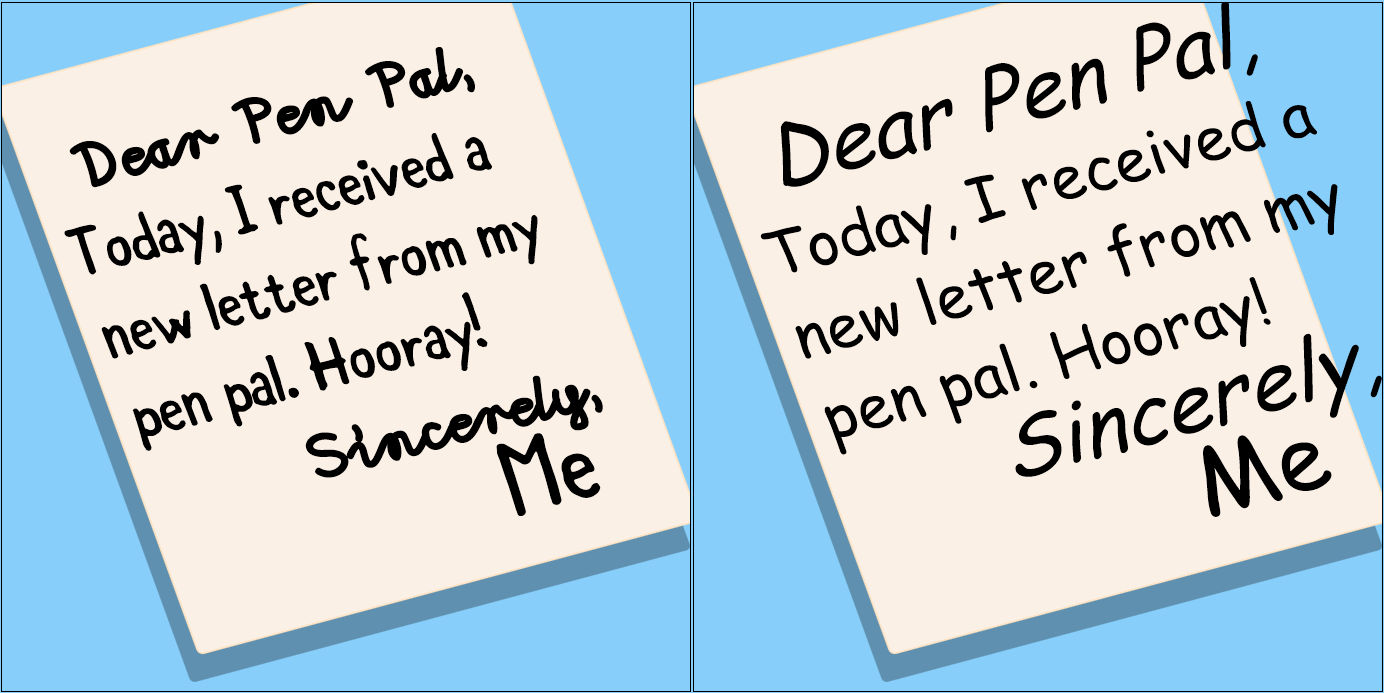 Dear Pen Pal,
Today, I received a
new letter from my
pen pal. Hooray!
Sincerely,
Me
Dear Pen Pal,
Today, I received a
new letter from my
pen pal. Hooray!
Sincerely,
Me